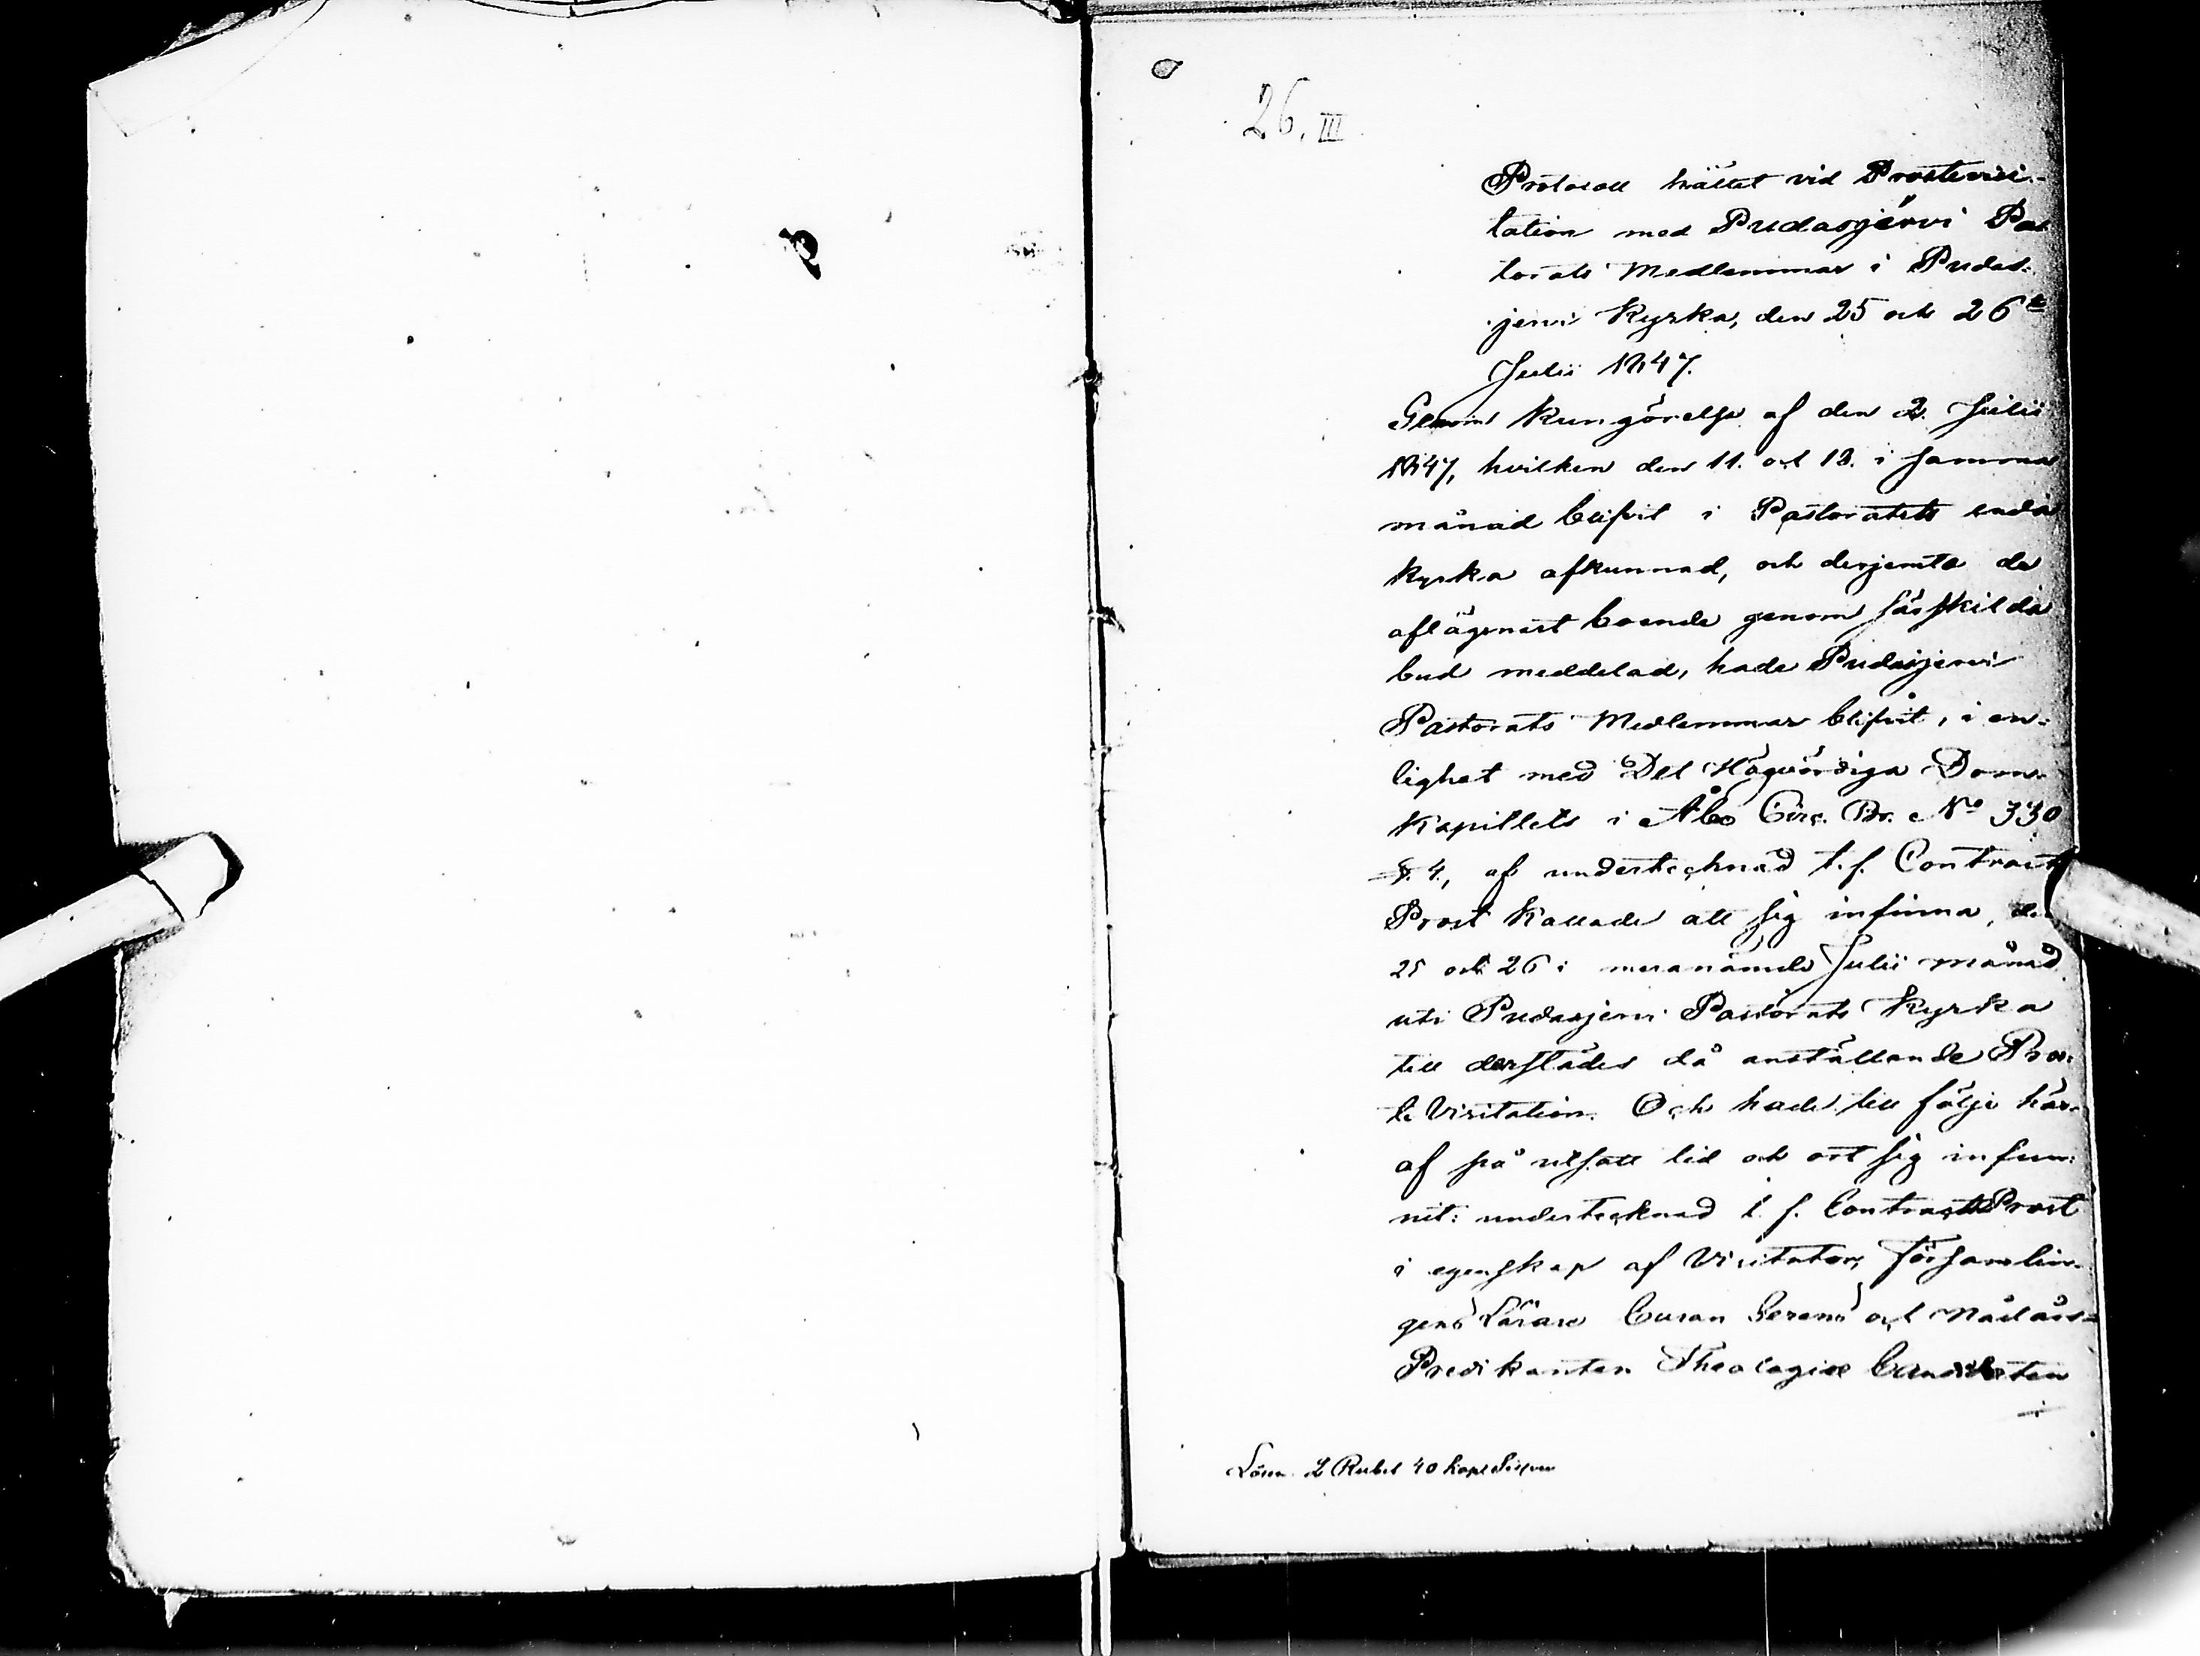 26. III
Protocoll hållet vid Prostevisi-
tation med Pudasjärvi Pas
torats Medlemmar i Pudas-
jervi Kyrka, den 25 och 26te
Julii 1847.
Genom Kungörelse af den 2. Julii
1847, hvilken den 11. och 18. i samma
månad blifvit i Pastoratets enda
kyrka afkunnad, och derjemte de
aflägsnast boende genom särskilda
bud meddelad, hade Pudasjervi
Pastorats Medlemmar blifvit, i en-
lighet med Det Högvördiga Dom-
Kapitlets i Åbo Circ. Br. No 330
§. 4, af undertecknad t.f. Contracts
Prost kallade att sig infinna, den
25 och 26 i meranämde Julii månad
uti Pudasjervi Pastorats Kyrka
till derstädes då anställande Pros-
te Visitation. Och hade till följe här-
af på utsatt tid och ort sig infun-
nit: undertecknad t. f. Contracts Prost
i egenskap af Visitator, församlin-
gens Lärare Curam Gerens och Nådårs-
Predikanten Theologiæ Candidaten
Lösen 2 Rubel 40 kop Silfver